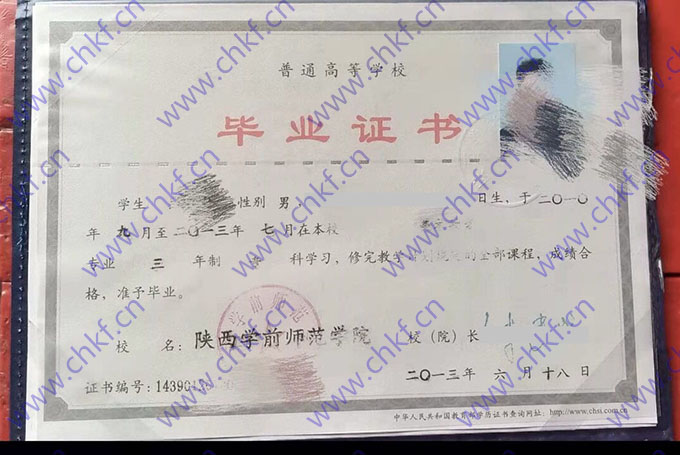 普通高等学校
毕业证书
学生 性别 男, 日生, 于 二〇一〇
年 九 月至 二〇一三年 七 月在本校
专业 三 年制 科学习, 修完教学 的全部课程, 成绩合
格, 准予毕业。
校 名: 陕西学前师范学院 校（院）长
二〇一三年 六 月 十八 日
证书编号: 14390
中华人民共和国教育部学历证书查询网址: http://www.chsi.com.cn
www.chkf.cn